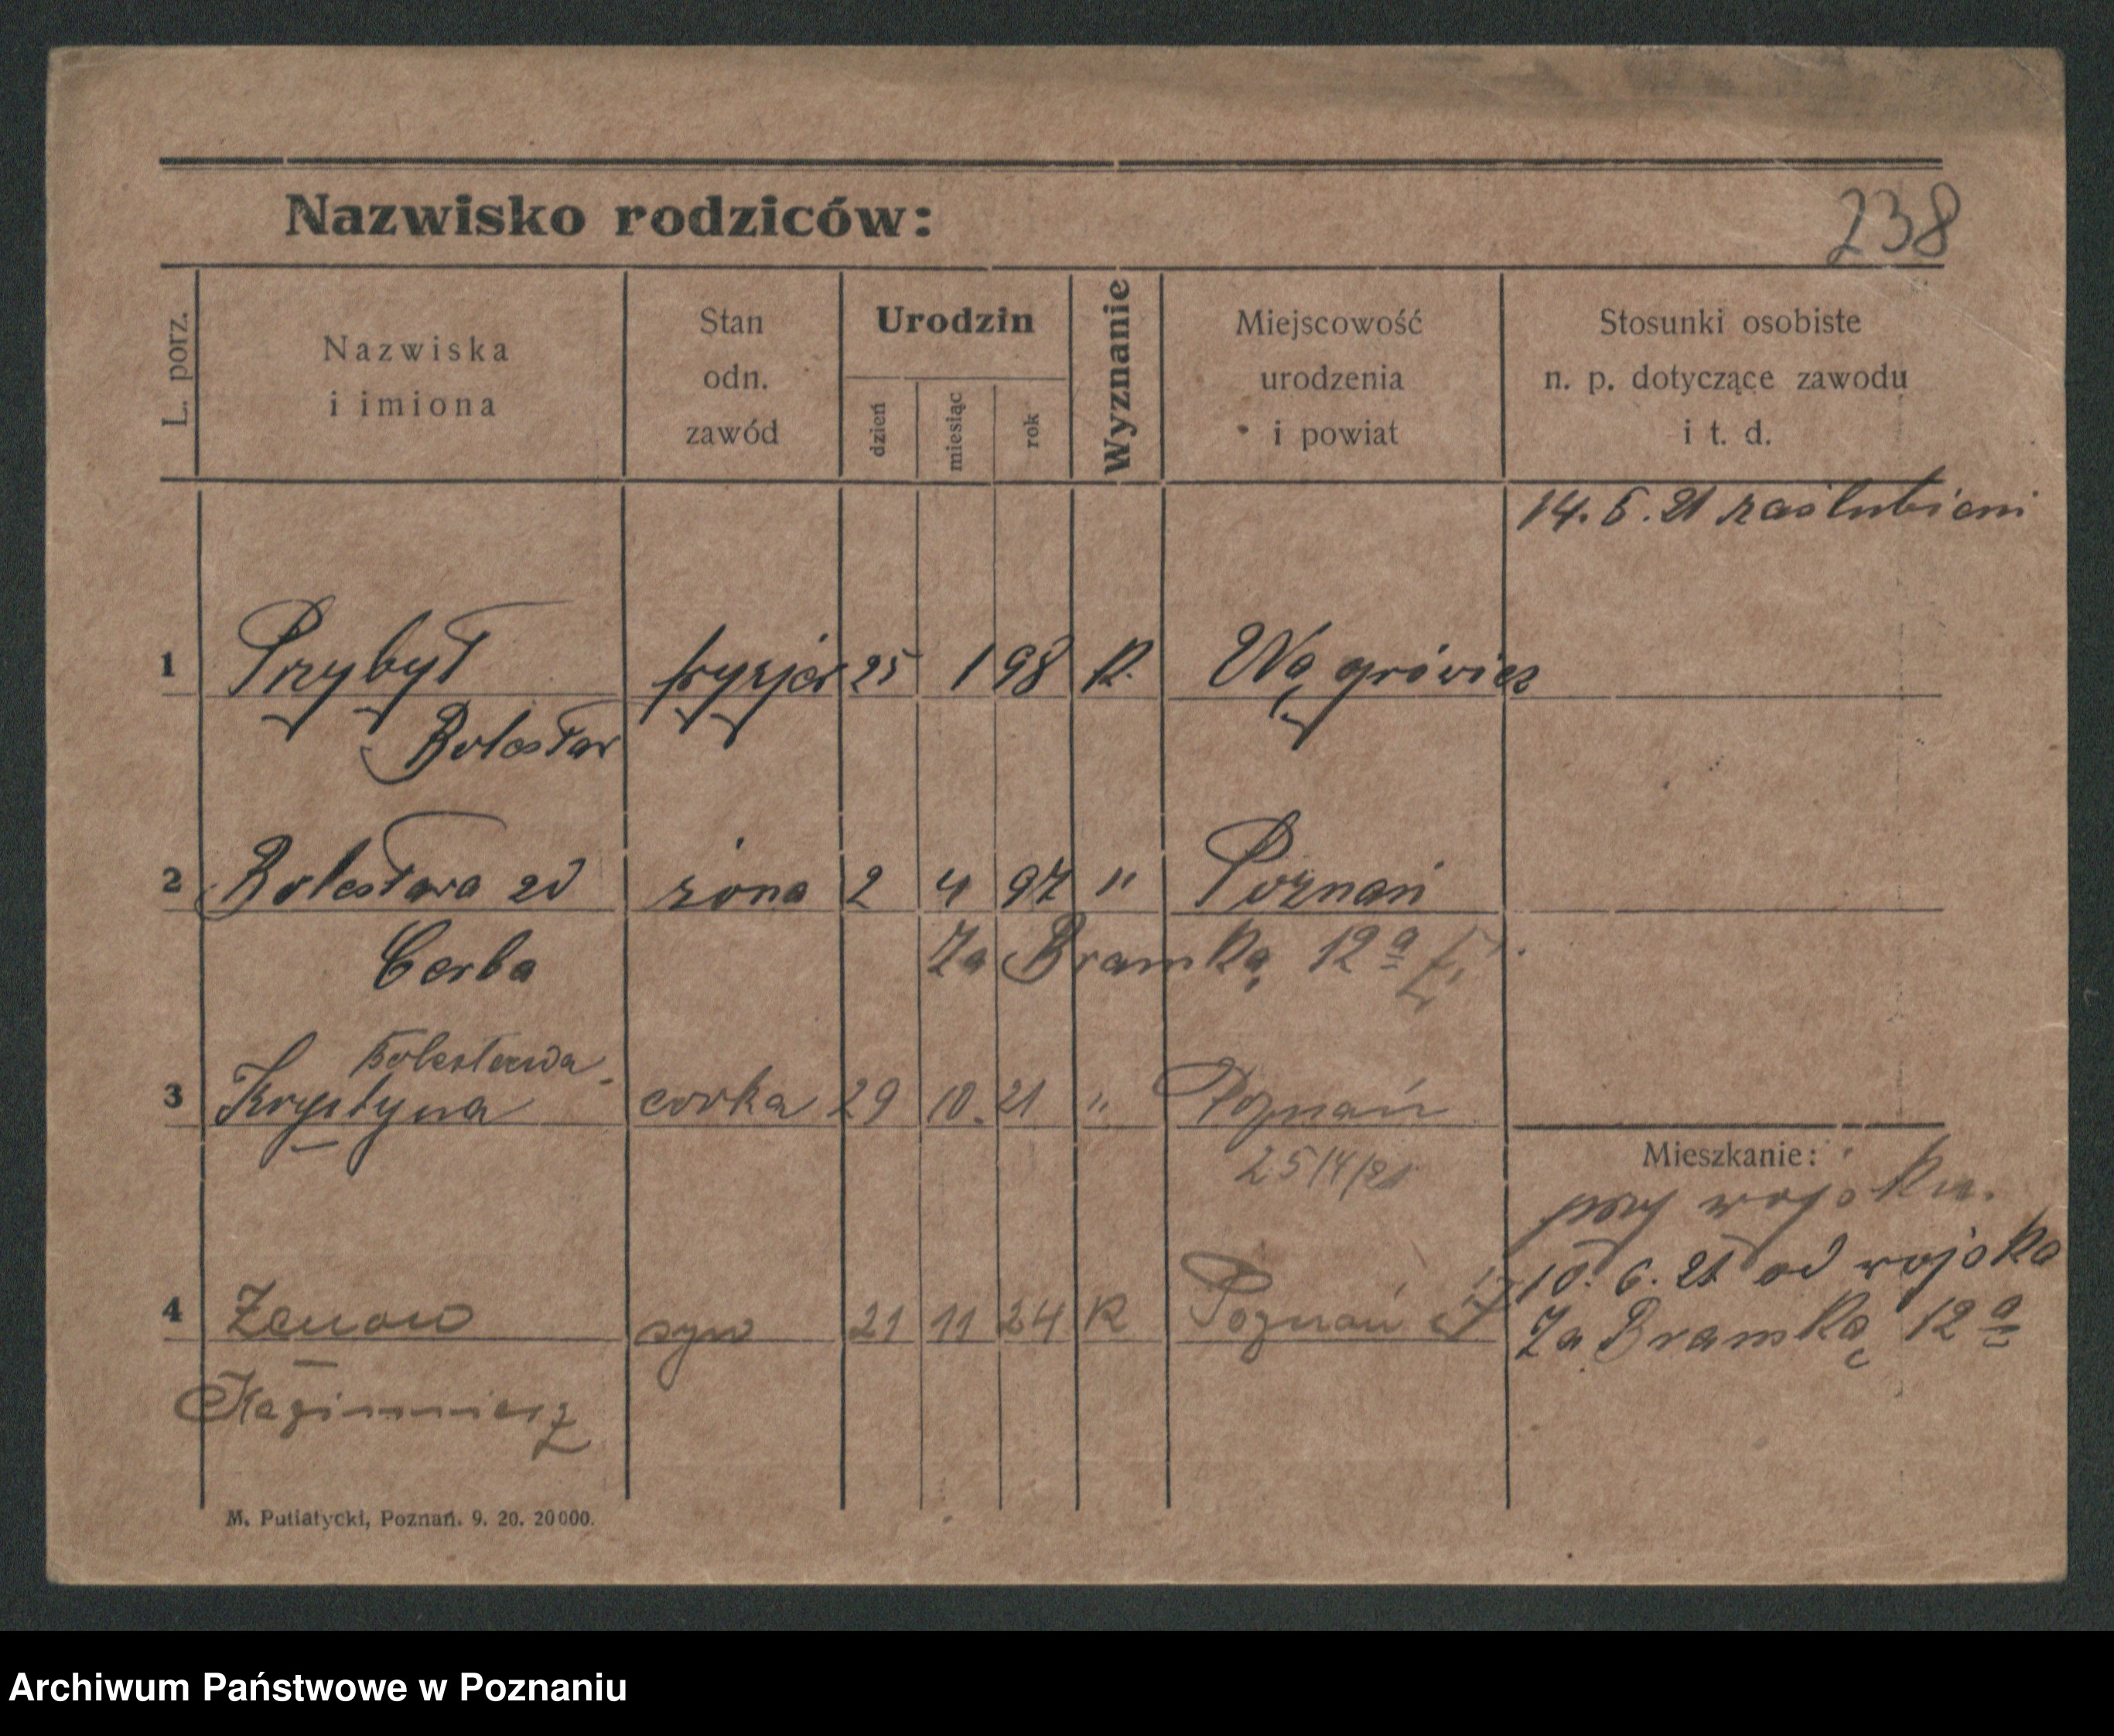 Nazwisko rodziców:
238
L. porz.
Nazwiska
i imiona
Stan
odn.
zawód
Urodzin
dzień
miesiąc
rok
Wyznanie
Miejscowość
urodzenia
i powiat
Stosunki osobiste
n. p. dotyczące zawodu
i t. d.
14. 6. 21 zaślubieni
1 Przybył fryzjer 25 1 98 K. Wągrówiec
Bolesław
2 Bolesława zd żona 2 4 97 " Poznań
Cerba Za Bramką 12a
Bolesława
3 Krystyna corka 29 10. 21 " Poznań
25/4/21
Mieszkanie:
przy wojsku.
10. 6. 21 od wojska
4 Zenon syn 21 11 24 K Poznań
Za Bramką 12a
Kazimierz
M. Putiatycki, Poznań. 9. 20. 20000.
Archiwum Państwowe w Poznaniu